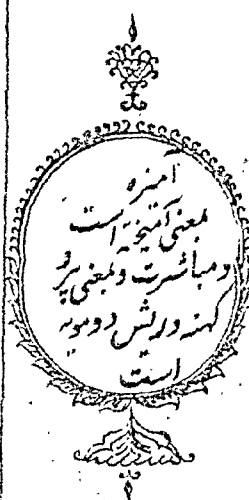 آمیزه
بمعنی آمیخته است
و مباشرت و بمعنی پیر و
کهنه و ریش دو مویه
است